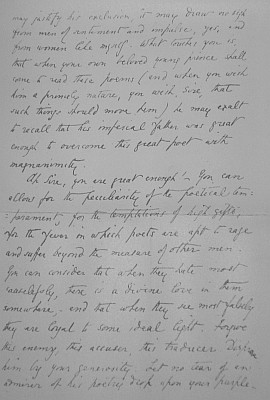 may justify his exclusion, it may draw no sigh
from men of sentiment and impulse, yes, and
from women like myself. What touches you is,
that when your own beloved young prince shall
come to read these poems (and when you wish
him a princely nature, you wish, Sire, that
such things should move him) he may exult
to recall that his imperial father was great
enough to overcome this great poet with
magnanimity.
Ah Sire, you are great enough! You can
allow for the peculiarity of the poetical tem-
perament, for the temptations of high gifts,
for the fever in which poets are apt to rage
and suffer beyond the measure of other men.
You can consider that when they hate most
causelessly, there is a divine love in them
somewhere, and that when they see most falsely
they are loyal to some ideal light. Forgive
this enemy, this accuser, this traducer. Disprove
him by your generosity. Let no tear of an
admirer of his poetry drop upon your purple.